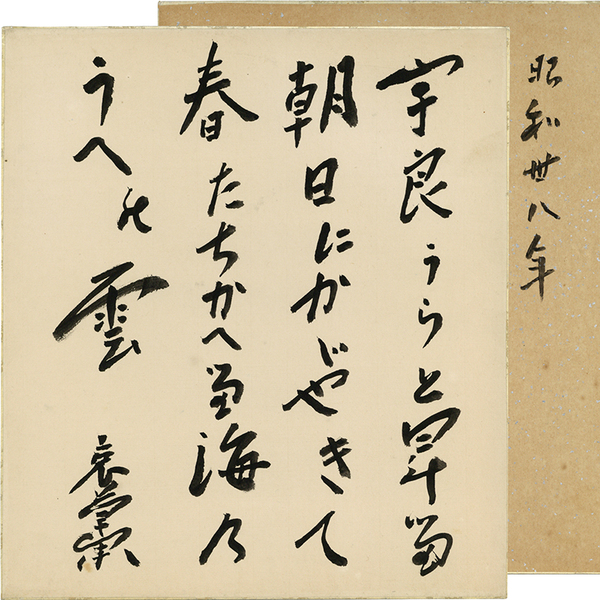 宇良うらと昇る
朝日にかゞやきて
春たちかへる海乃
うへの雲
哀草果
昭和卅八年